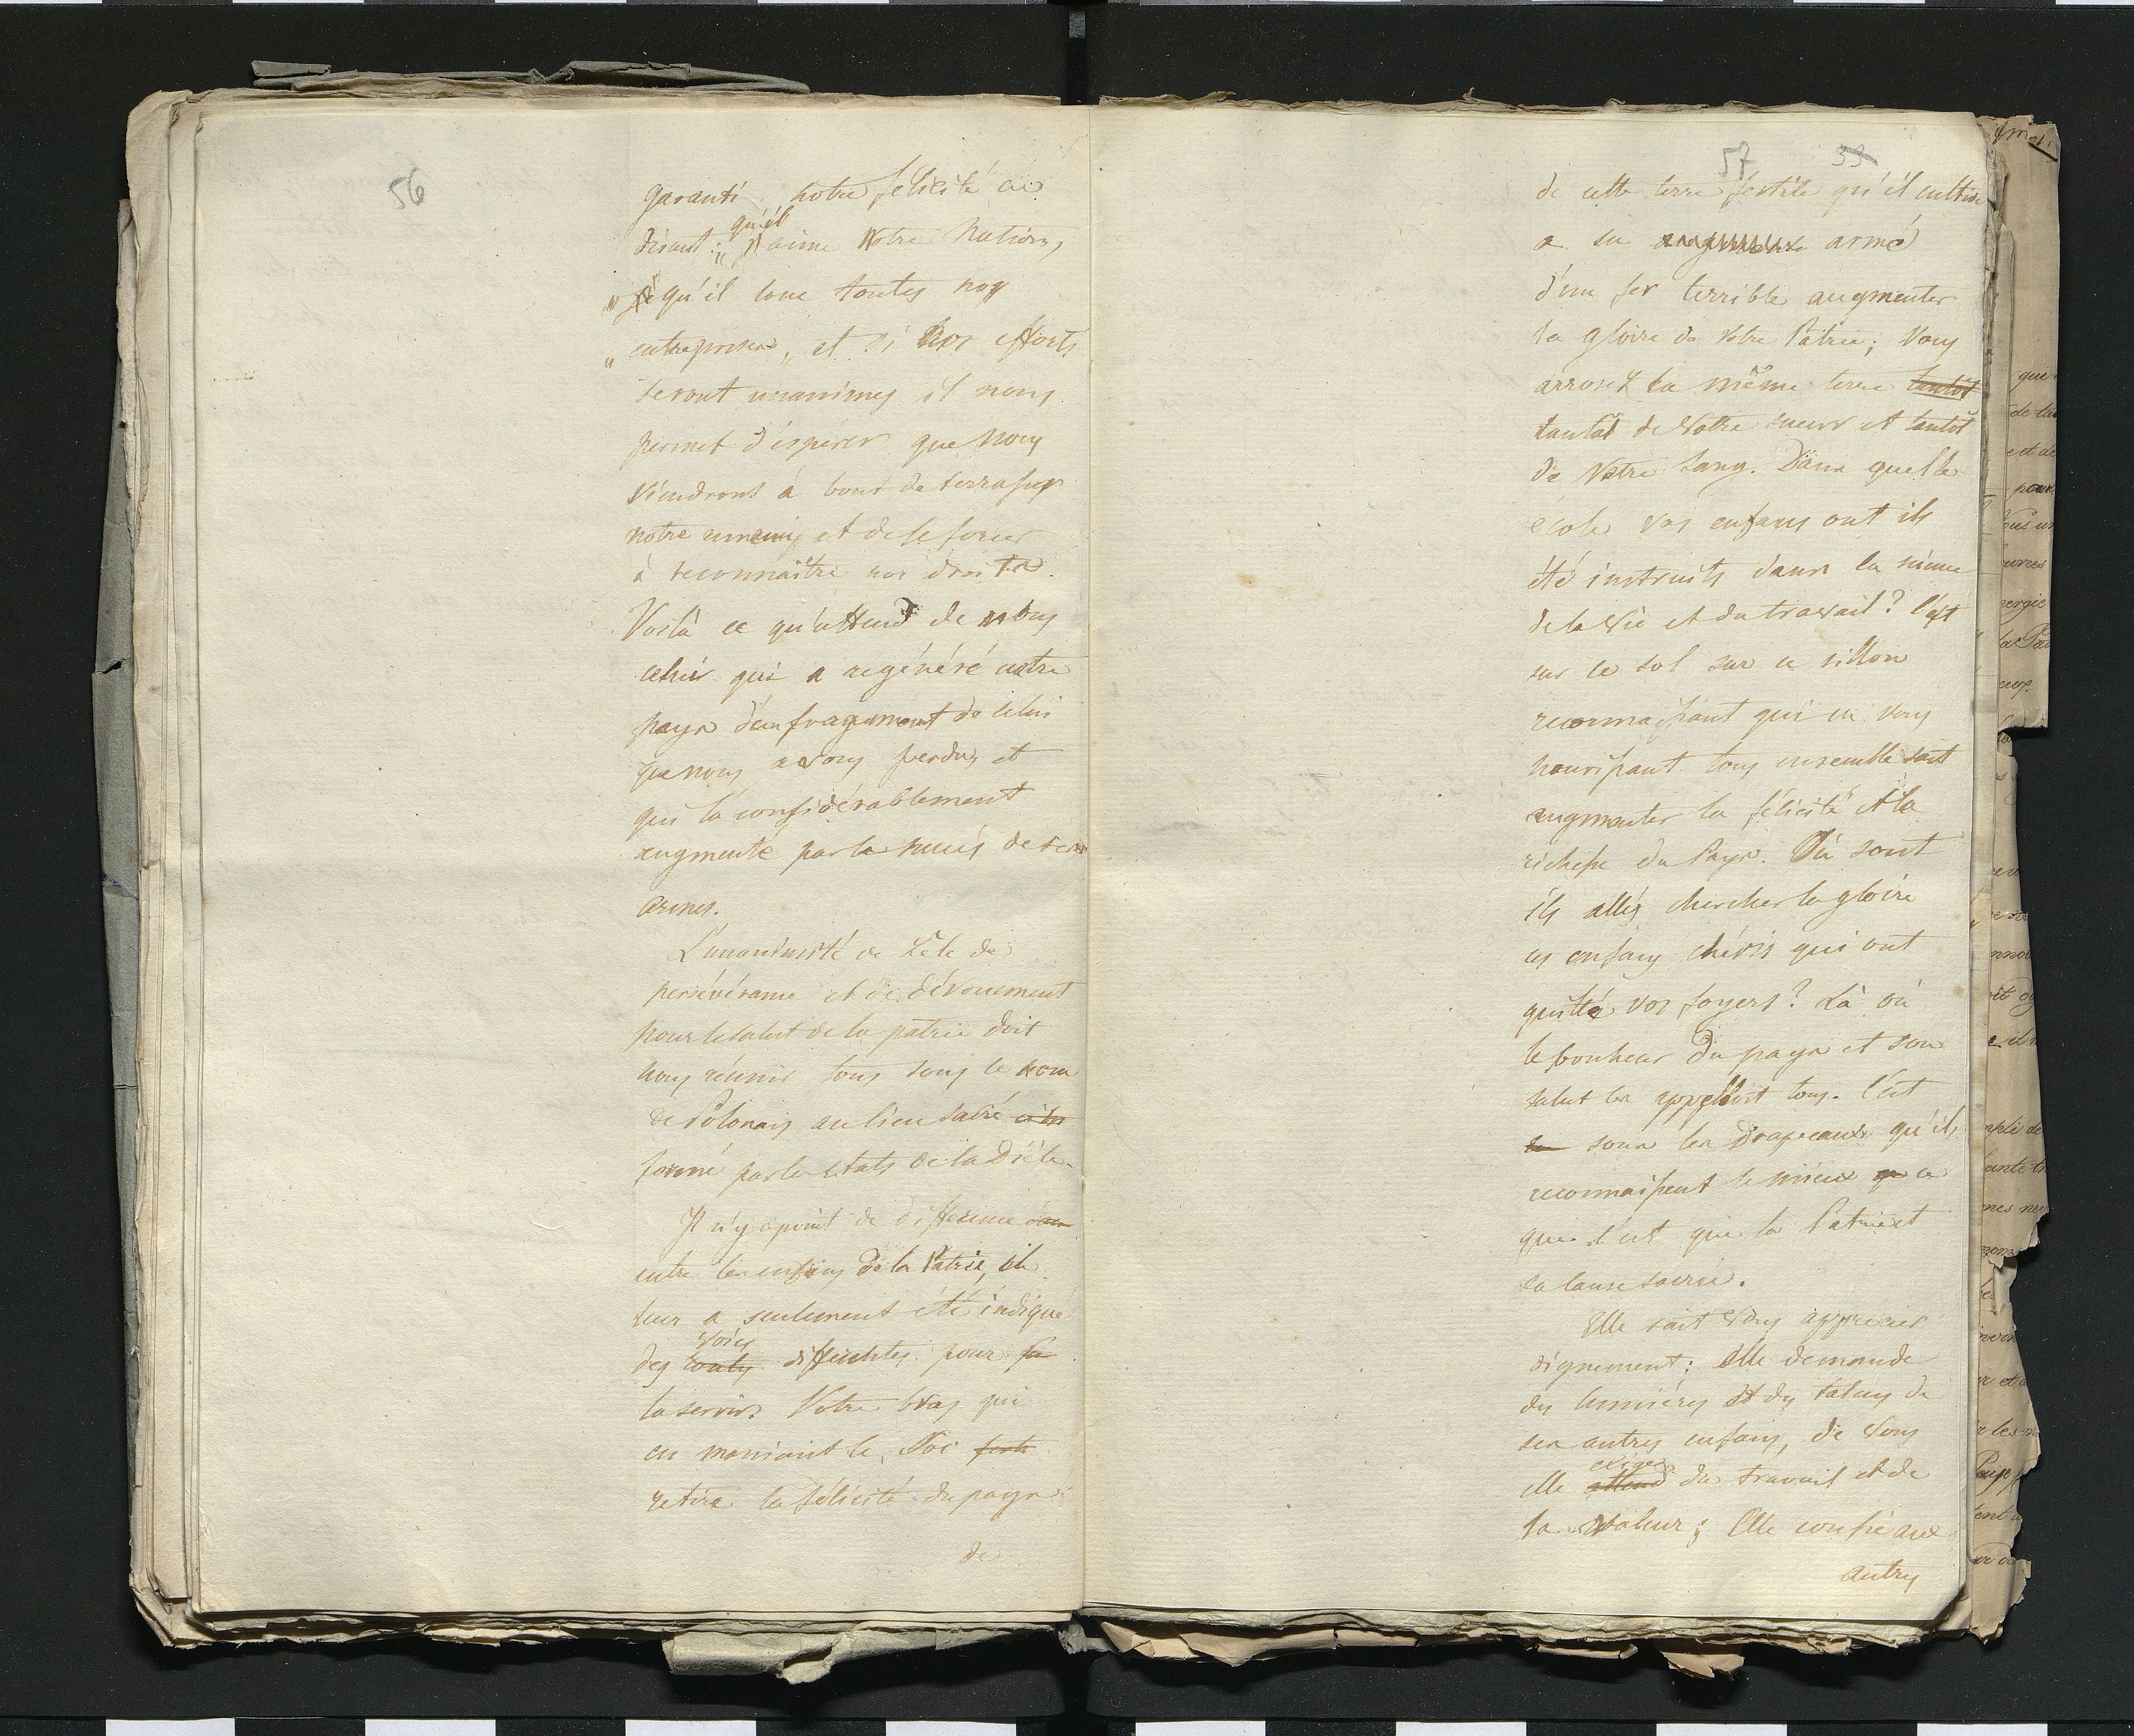 56
garanti notre félicité en
disant: „ qu'il aime Notre Nation,
„ qu'il loue toutes nos
„ entreprises „ et si nos efforts
seront unanimes il nous
permet d'espérer que nous
viendrons à bout de terrasser
notre ennemi et de le forcer
à reconnaître nos droits.
Voilà ce qu'attend de nous
celui qui a regénéré notre
pays d'un fragument de celui
que nous avons perdu, et
qui l'a considérablement
augmenté par le succés de ses
armes.
L'unanimité ce zèle de
persévérance et de dévouement
pour le salut de la patrie doit
nous réunir tous sous le nom
de Polonais au lieu sacré
formé par les etats de la Diète.
Il n'y a point de différence
entre les enfans de la Patrie, il
leur a seulement été indiqué
voies
des routes différentes pour sa
la servir. Votre bras qui
en maniant le Soc
retire la félicité du pays
de
57 55
de cette terre fertile qu'il cultive
a su armé
d'un fer terrible augmenter
la gloire de Votre Patrie; Vous
arrosez la même terre tantôt
tantôt de Votre sueur et tantôt
de Votre Sang. Dans quelle
école vos enfans ont ils
été instruits dans la sience
de la vie et du travail? C'est
sur ce sol sur ce sillon
reconnaissant qui en vous
nourissant tous ensemble sait
augmenter la félicité et la
richesse du Pays. Où sont
ils allés chercher la gloire
ces enfans chéris qui ont
quitté vos foyers? Là où
le bonheur du pays et son
salut les appelloit tous. C'est
sous les Drapeaux qu'ils
reconnaissent le mieux ce
que c'est que la Patrie et
sa cause sacrée.
Elle sait vous apprécier
dignement: Elle demande
des lumières et des talens de
ses autres enfans, de vous
exige
elle attend du travail et de
la valeur; Elle confie aux
autres